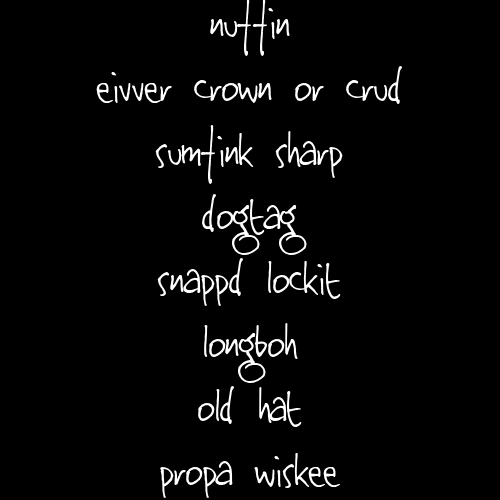 nuffin
eivver crown or crud
sumfink sharp
dogtag
snappd lockit
longboh
old hat
propa wiskee